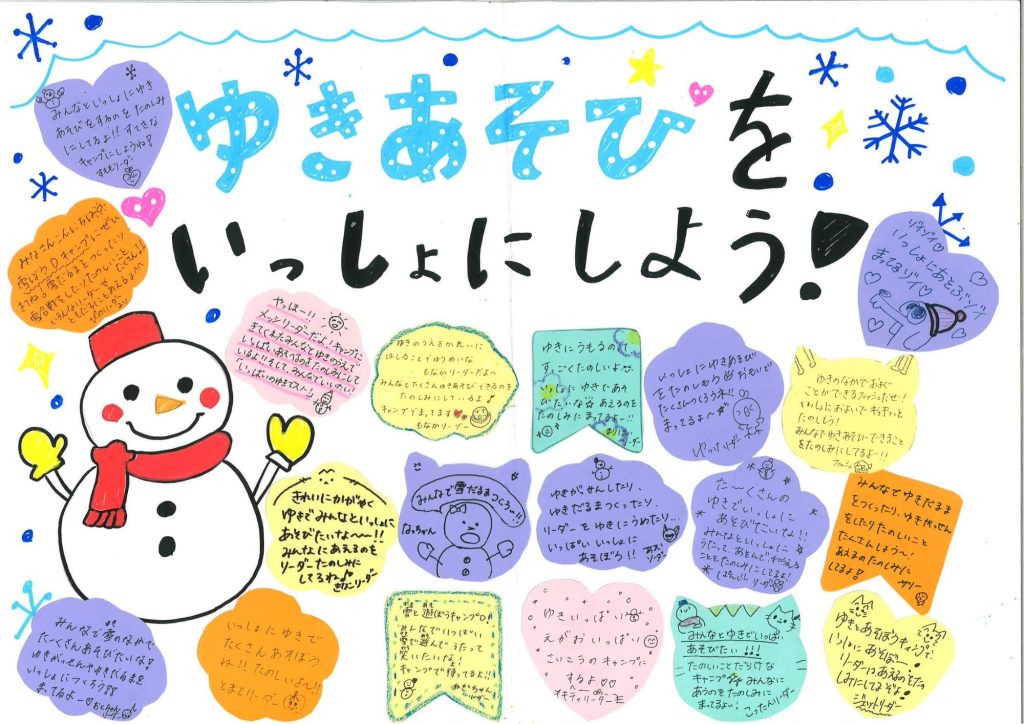 ゆきあそびを
いっしょにしよう!
みんなといっしょにゆき
あそびをするのをたのしみ
にしてるよ!!すてきな
キャンプにしようね!
すももリーダー
みなさんこんにちは
雪ぼうDキャンプにぜひ
きてね。雪だるまをつくったり
雪合戦をしたりたのしいこと
たくさん!!
いろんなリーダーや
ともだちにもあえるよ〜
ゾイゾイ
いっしょにあそぶゾイ
まってるゾイ
やっほー!!
メッシリーダーだよ!キャンプに
きてくれたみんなとゆきのうえで
いっぱいあそべるのをたのしみにして
いるよ!!そして、みんなでいいたい!
いっぱいのゆきでスマトン!
ゆきのうえをかれいに
はしることでゆうめいな
もなかリーダーだよ〜
みんなとたくさんゆきあそびできるのを
たのしみにしているよ♪
キャンプでまってます
もなかリーダー
ゆきにうもるの
すっごくたのしいよ
いっしょにゆきであそ
びたいな あえるのを
たのしみにまってるよー!!
まりほいリーダー
いっしょにゆきあそび
をたのしもう おもいで
たくさんつくろうネ!!
まってるよ〜
ゆっけリーダー
ゆきのなかでおよぐ
ことができるフィッシュだぜー!
いっしょにおよいでキャキャッと
たのしもう!
みんなでゆきあそびできること
をたのしみにしてるよー!!
フィッシュ
きれいにかがやく
ゆきでみんなといっしょに
あそびたいな〜〜!!
みんなにあえるのを
リーダーたのしみに
してるね♪
きなこリーダー
みんなで雪だるまつくろう〜!!
なっちゃん
ゆきがっせんしたり、
ゆきだるまつくったり、
リーダーをゆきにうめたり...
いっぱいいっしょに
あそぼう!!
あえリーダー
た〜くさんの
ゆきでいっしょに
あそびたいな!!
みんなといっしょに
うたって、あそんで、わらえる
ことをたのしみにしてるよ!
はんじーリーダー
みんなでゆきだるま
をつくったり、ゆきがっせん
をしたりたのしいこと
たくさんしよう〜!
あえるのたのしみに
してるよ!
サリー
みんなで雪のなかで
たくさんあそびたいな!
ゆきがっせんやゆきだるまを
いっしょにつくろう!!
まってるよー♡
おとちゃんリーダー
いっしょにゆきで
たくさんあそぼう
ね!!たのしいよ〜!!
とまとリーダー
雪と遊ぼうキャンプD!
みんなでいっぱい
雪で遊んでうたって
笑いたいな♪
キャンプで待ってるよ!!
ねぎちゃんリーダー
ゆきいっぱい
えがおいっぱい
さいこうのキャンプに
するよ♡♡
オキティリーダーモ
みんなとゆきでいっぱい
あそびたい!!!
たのしいことだらけな
キャンプ みんなに
あうのをたのしみに
まってるよ!
こったんリーダー
ゆきとあそぼうキャンプで!
いっしょにあそぼー
リーダーはあえるのをたの
しみにしてるぞよ!
ジェットリーダー